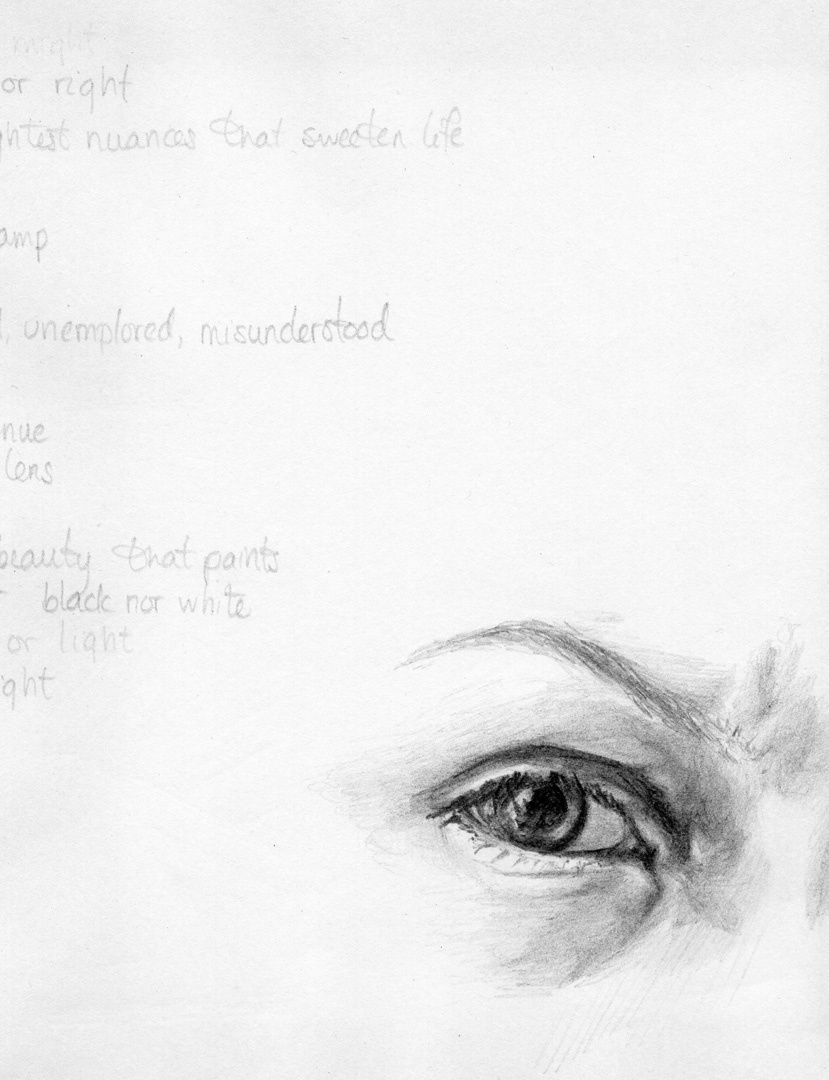 knight
or right
ghtest nuances that sweeten life
amp
, unemplored, misunderstood
nue
lens
beauty that paints
black nor white
or light
ight